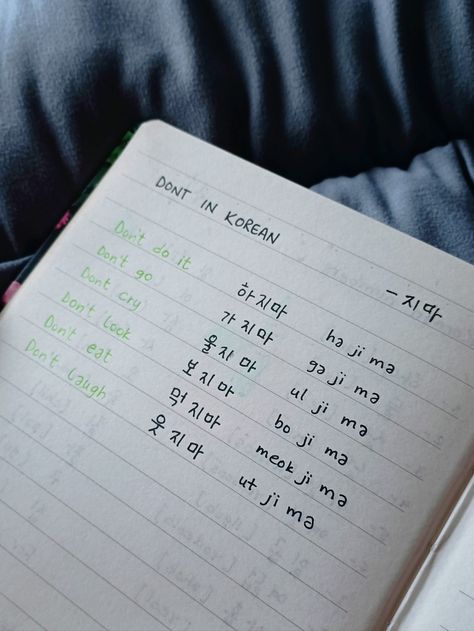 DONT IN KOREAN
-지마
Don't do it 하지마 ha ji ma
Don't go 가지마 ga ji ma
Dont cry 울지마 ul ji ma
Don't look 보지마 bo ji ma
Don't eat 먹지마 meok ji ma
Don't laugh 웃지마 ut ji ma